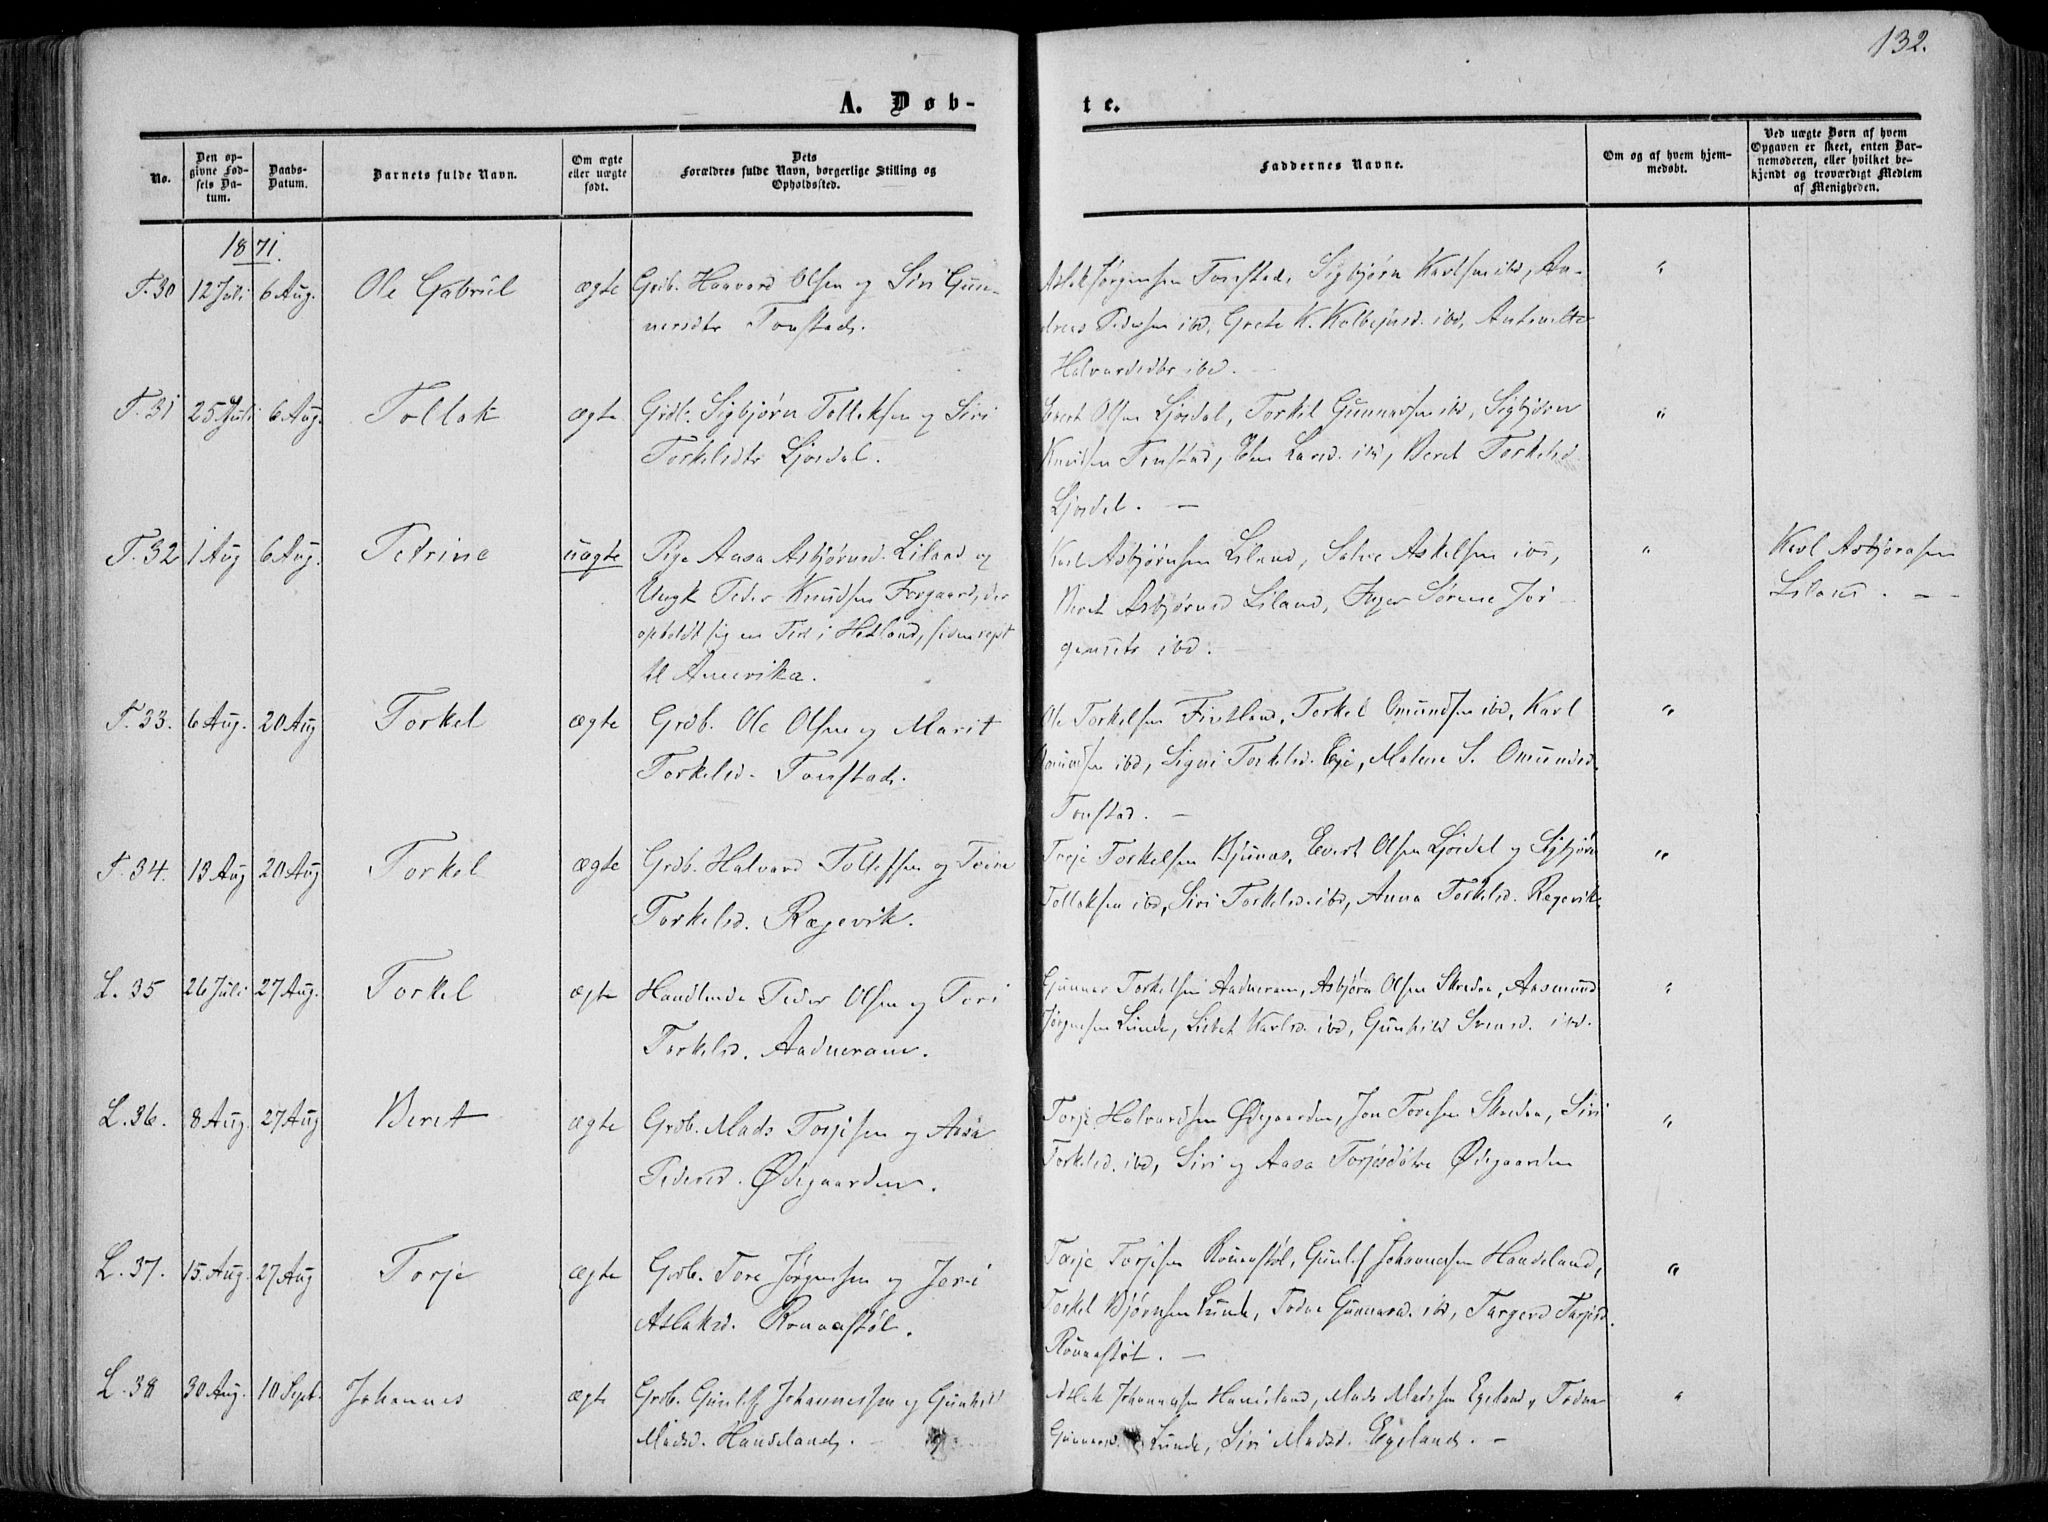 132.
A. Døb-
te.
No.
Den op-
givne Fød-
sels Da-
tum.
Daabs-
Datum.
Barnets fulde Navn.
Om ægte
eller uægte
født.
Dets
Forældres fulde Navn, borgerlige Stilling og
Opholdssted.
Faddernes Navne.
Om og af hvem hjem-
medøbt.
Ved uægte Børn af hvem
Opgaven er skeet, enten Bar-
nemoderen, eller hvilket be-
kjendt og troværdigt Medlem
af Menigheden.
1871.
T.30 12 Juli 6 Aug. Ole Gabriel ægte Grdb. Haavard Olsen og Siri Gun-
nersdtr Tonstad.
Aslak Jørgensen Tonstad, Sigbjørn Karlsen ibd, An-
dreas Pedersen ibd, Grete K. Kolbejnsd. ibd,
Halvardsdtr ibd. "
T.31 25 Juli 6 Aug. Tollak ægte Grdb. Sigbjørn Tollaksen og Siri
Torkelsdtr Ljosdal.
Evert Olsen Ljosdal, Torkel Gunnarsen ibd, Sigbjørn
Knudsen Tonstad, Larsd. ibd, Beret Torkelsd.
Ljosdal. — "
T.32 1 Aug 6 Aug. Petrine uægte Pige Aasa Asbjørnsd. Liland og
Ungk Peder Knudsen der
opholdt sig en Tid i Hetland, siden rejst
til Amerika.
Karl Asbjørnsen Liland, Salve Askelsen ibd,
Beret Asbjørnsd Liland, Inger Sørene Jør-
gensdtr ibd. "
Karl Asbjørnsen
Liland. —
T.33. 6 Aug. 20 Aug Torkel ægte Grdb. Ole Olsen og Marit
Torkelsd. Tonstad.
Ole Torkelsen Fintland, Torkel Omundsen ibd, Karl
Omundsen ibd, Signi Torkelsd. Eje, Malene S. Omundsd.
Tonstad. — "
T.34. 13 Aug 20 Aug Torkel ægte Grdb. Halvard Tollefsen og
Torkelsd. Rægevik.
Torje Torkelsen Bjunes, Evert Olsen Ljosdal og Sigbjørn
Tollaksen ibd, Siri Torkelsd. ibd, Anna Torkelsd. Regevik. "
L.35 26 Juli 27 Aug. Torkel ægte Handlende Peder Olsen og Tori
Torkelsd. Aadneram.
Gunnar Torkelsen Aadneram, Asbjørn Olsen Skredaa, Aasmund
Jørgensen Lunde, Lisbet Karlsd. ibd, Gunhild Svensd. ibd. "
L.36. 8 Aug. 27 Aug Beret ægte Grdb. Mads Torjesen og Aasa
Pedersd. Ødegaarden.
Torje Halvardsen Ødegaarden, Jon Toresen Skredaa, Siri
Torkelsd. ibd, Siri og Aasa Torjesdøtre Ødegaarden "
L.37. 15. Aug. 27 Aug Torje ægte Grdb. Tore Jørgensen og Jori
Aslaksd. Rounastøl.
Tarje Torjesen Rounastøl, Gunlef Johannesen Haneland,
Torkel Bjørnsen Lunde, Todne Gunnarsd. ibd, Targerd Tarjesd.
Rounastøl. — "
L.38 30 Aug. 10 Sept. Johannes ægte Grdb. Gunlef Johannessen og Gunhild
Madsd. Haneland. —
Aslak Johannesen Haneland, Mads Madssen Egeland, Todne
Gunnarsd. Lunde, Siri Madsd. Egeland. — "